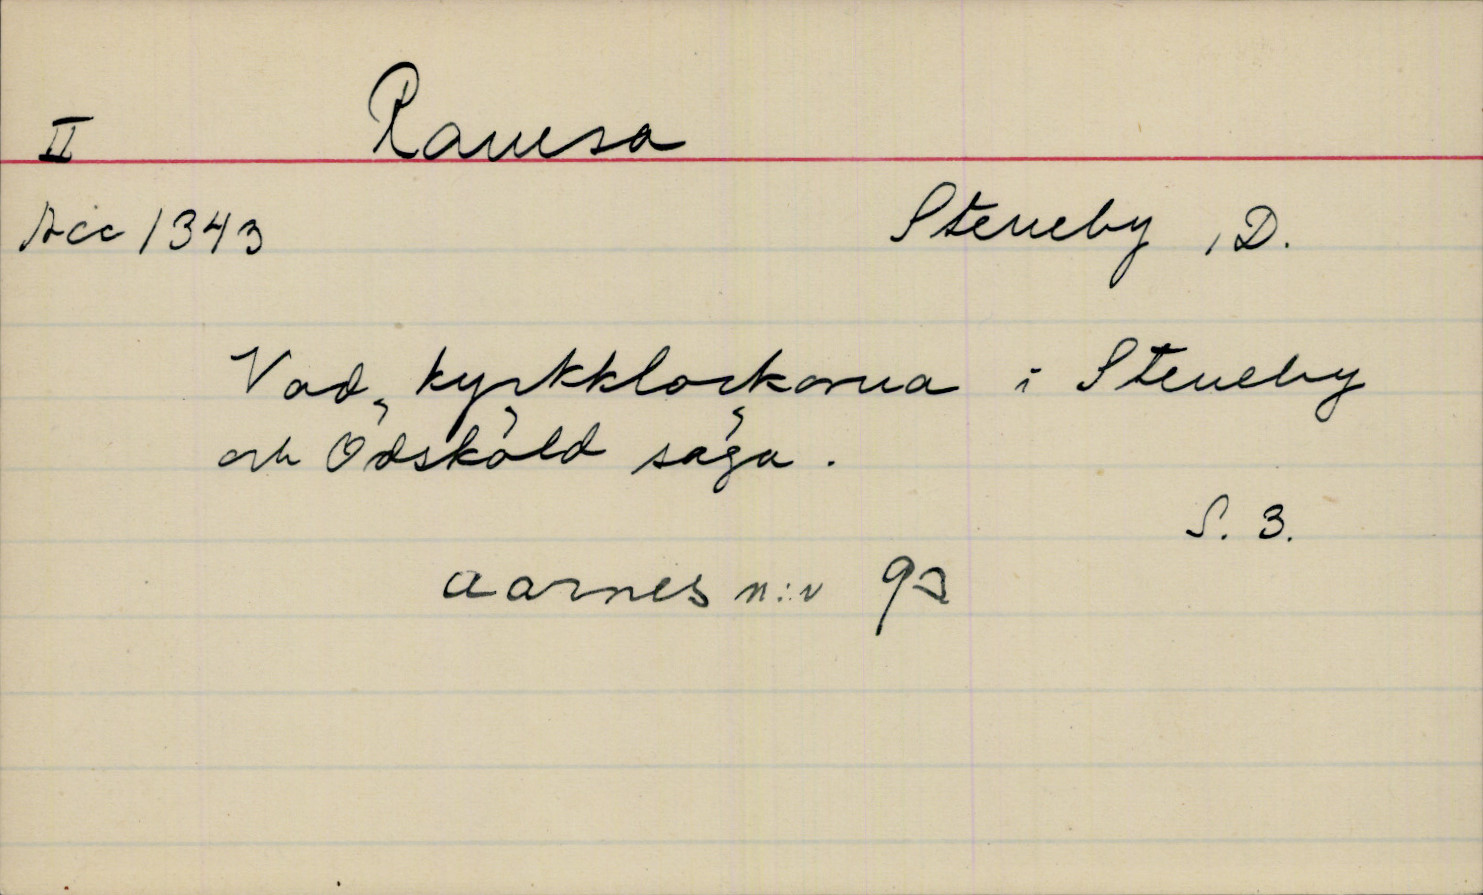 II Ramsa
Acc 1343 Steneby, D.
Vad kyrkklockorna i Steneby
och Ödsköld säga.
S. 3.
Aarnes n:r 92